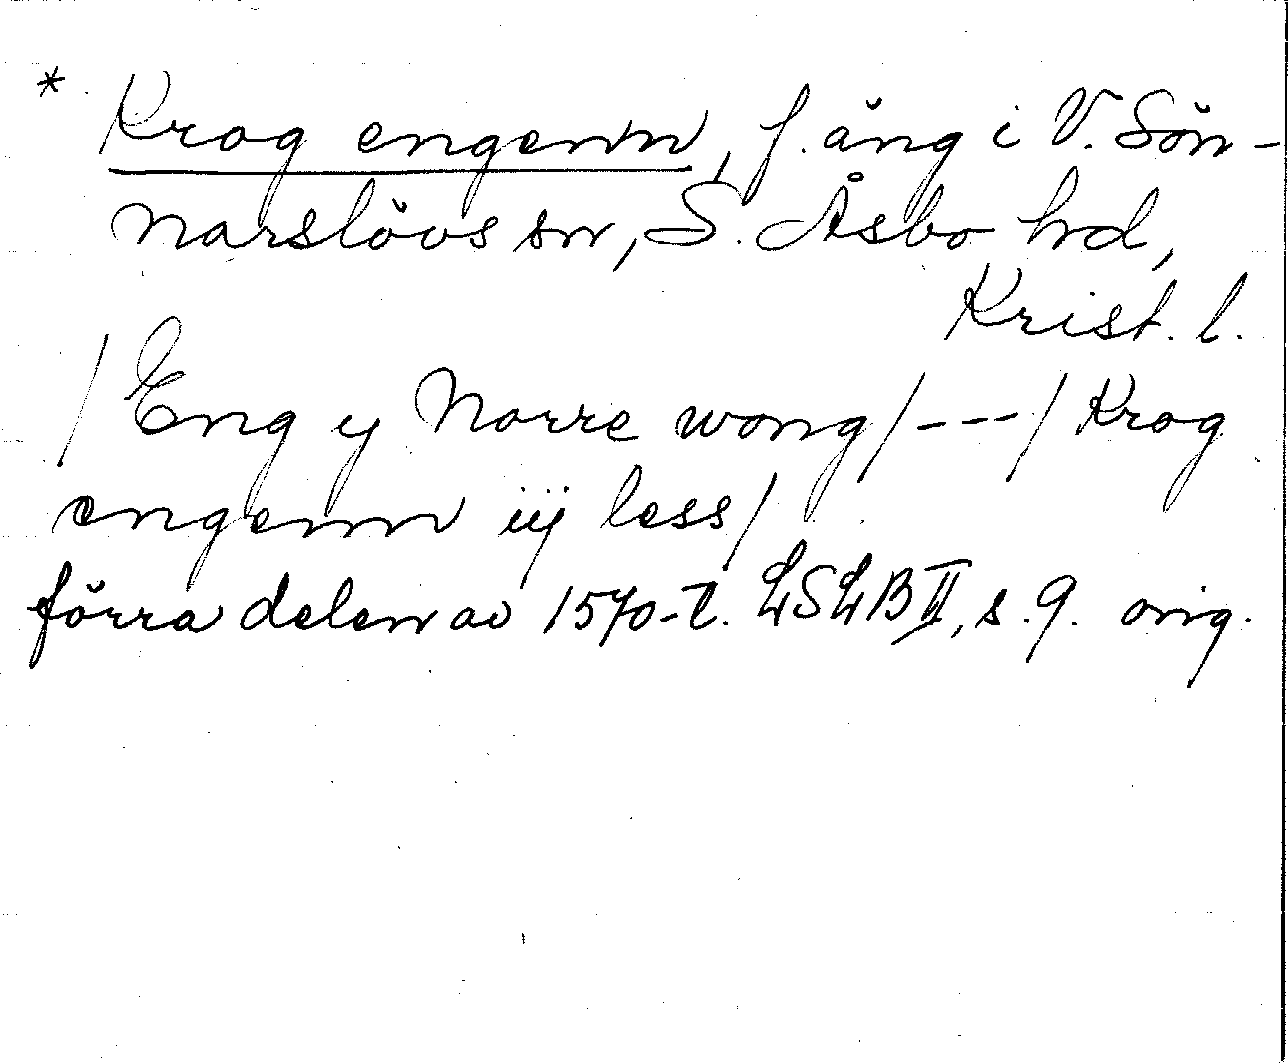 * Krog engenn, f. äng i V. Sön-
narslövs sn, S. Åsbo hd,
Krist. l.
/ Eng y Norre wong / --- / Krog
engenn iij less /
förra delen av 1570-t. LSLB II, s. 9. orig.